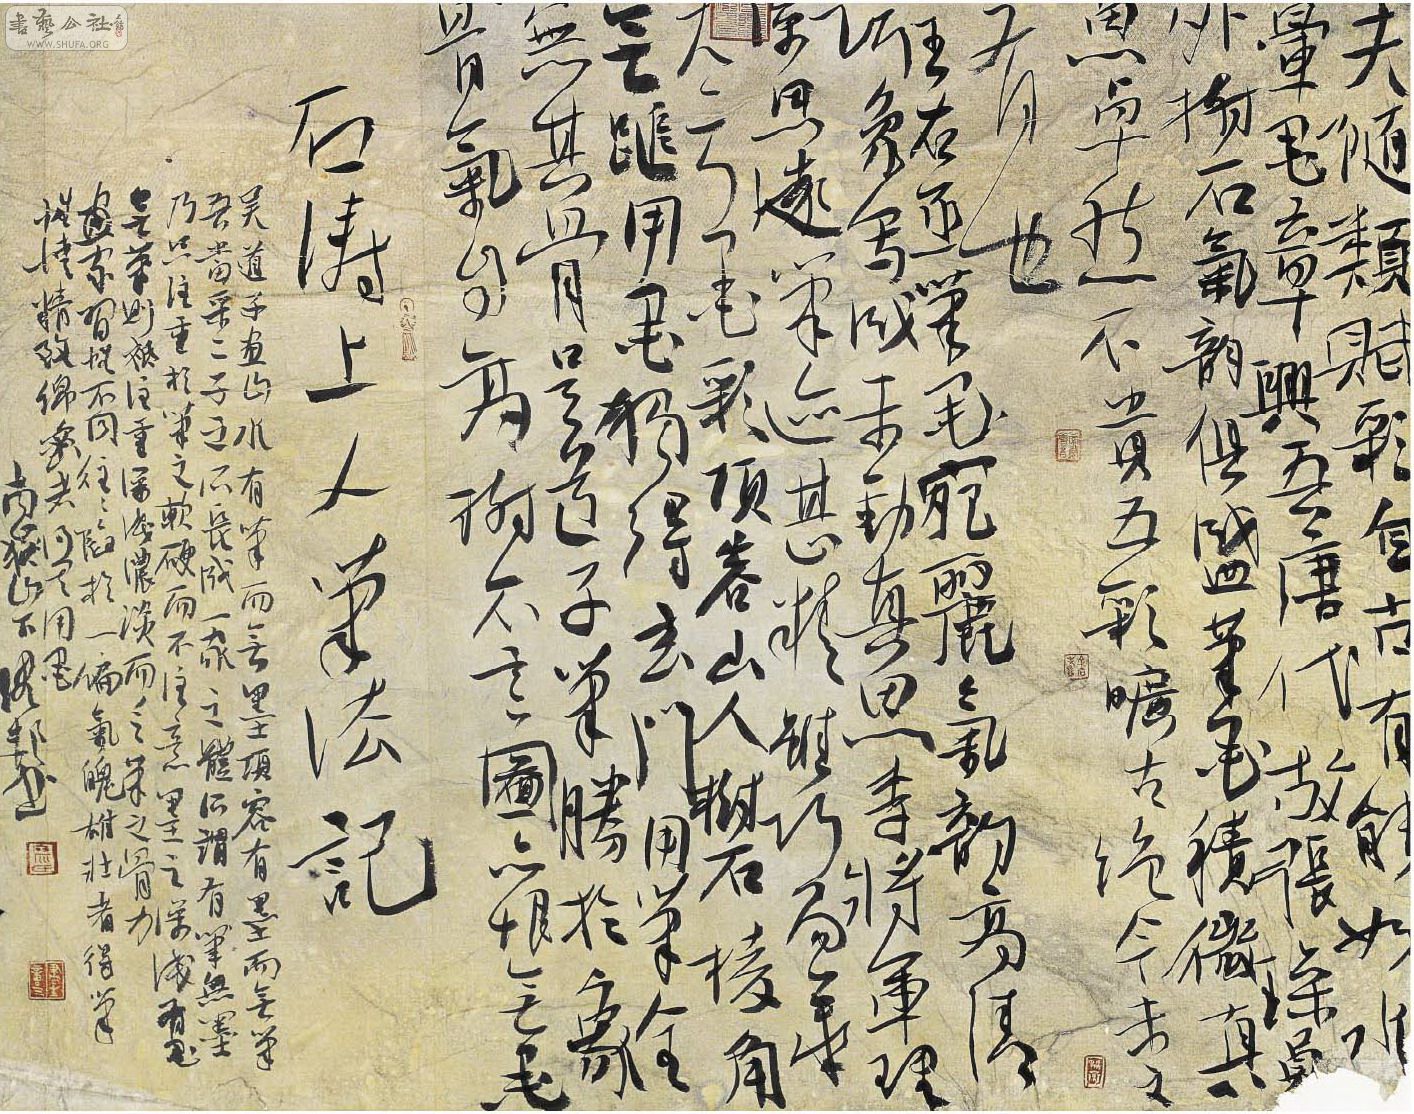 書藝公社
WWW.SHUFA.ORG
夫隨類賦彩自古有能如水
暈墨章興吾唐代故張璪員
外樹石氣韻俱盛筆墨積微真
思卓然不貴五彩曠古絕今未之
有也
王右丞筆墨宛麗氣韻高清
巧象寫成亦動真思李將軍理
深思遠筆迹甚精雖巧而華
大虧墨彩項容山人樹石棱角
無蹤用墨獨得玄門用筆全
無其骨吳道子筆勝於象
骨氣自高樹不言圖亦恨無墨
石濤上人筆法記
吳道子畫山水有筆而無墨項容有墨而無筆
吾當采二子之所長成一家之體所謂有筆無墨
乃只注重於筆之軟硬而不注意墨之深淺有墨
無筆則祇注重深淺濃淡而無筆之骨力
畫家習性不同往往陷於一偏氣魄雄壯者得筆
性情精致者用墨
山下